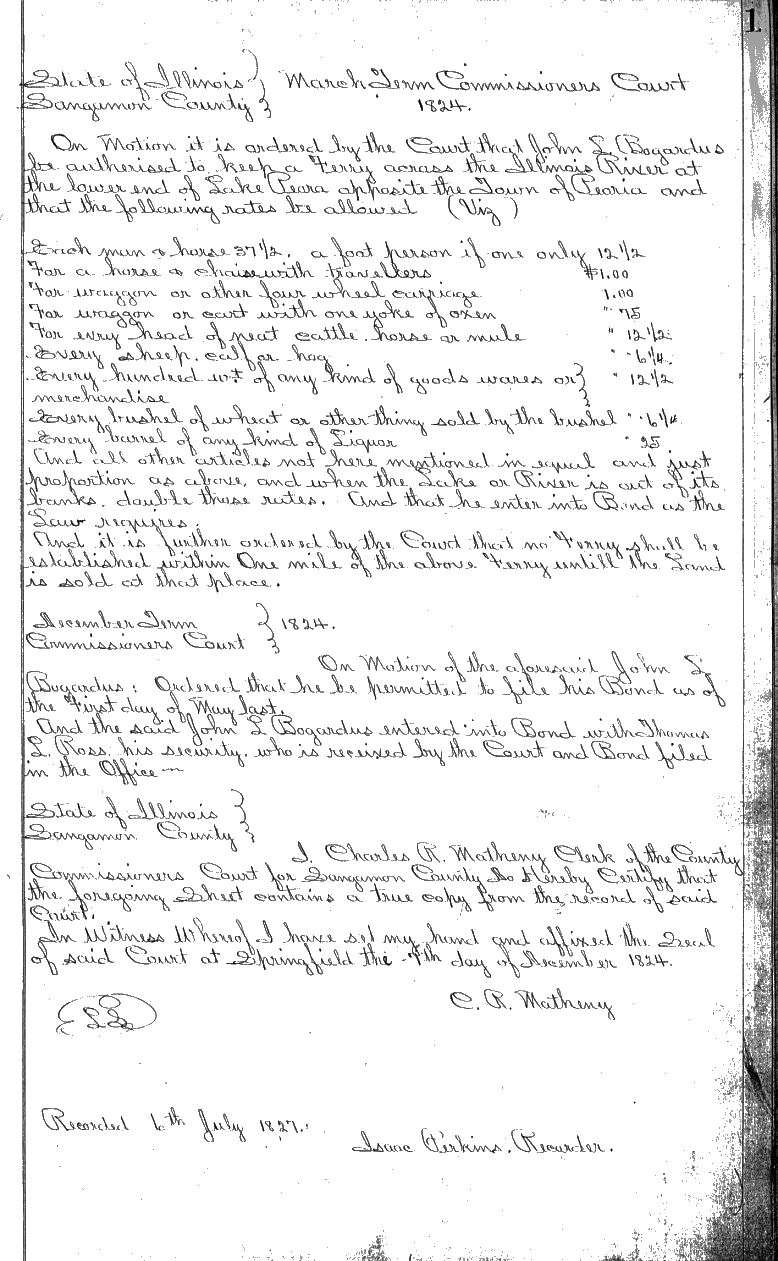 1
State of Illinois } March Term Commissioners Court
Sangamon County } 1824.
On Motion it is ordered by the Court that John L Bogardus
be authorised to keep a Ferry across the Illinois River at
the lower end of Lake Peora opposite the Town of Peoria and
that the following rates be allowed (Viz)
Each man & horse 37 1/2, a foot person if one only 12 1/2
For a horse & chaise with travellers $1.00
For waggon or other four wheel carriage 1.00
For waggon or cart with one yoke of oxen " 75
For evry head of neat cattle, horse or mule " 12 1/2
Every sheep, calf or hog " 6 1/4
Every hundred wt of any kind of goods wares or } " 12 1/2
merchandise }
Every bushel of wheat or other thing sold by the bushel " 6 1/4
Every barrel of any kind of Liquor " 25
And all other articles not here mentioned in equal and just
proportion as above, and when the Lake or River is out of its
banks, double those rates. And that he enter into Bond as the
Law requires.
And it is further ordered by the Court that no Ferry shall be
established within One mile of the above Ferry untill the Land
is sold at that place.
December Term } 1824.
Commissioners Court }
On Motion of the aforesaid John L
Bogardus: Ordered that he be permitted to file his Bond as of
the First day of May last.
And the said John L Bogardus entered into Bond with Thomas
L. Ross, his security, who is received by the Court and Bond filed
in the Office —
State of Illinois }
Sangamon County }
I, Charles R. Matheny Clerk of the County
Commissioners Court for Sangamon County do Hereby Certify that
the foregoing Sheet contains a true copy from the record of said
Court.
In Witness Whereof I have set my hand and affixed the Seal
of said Court at Springfield the day of December 1824.
C. R. Matheny
LS
Recorded 6th July 1827.
Isaac Perkins, Recorder.